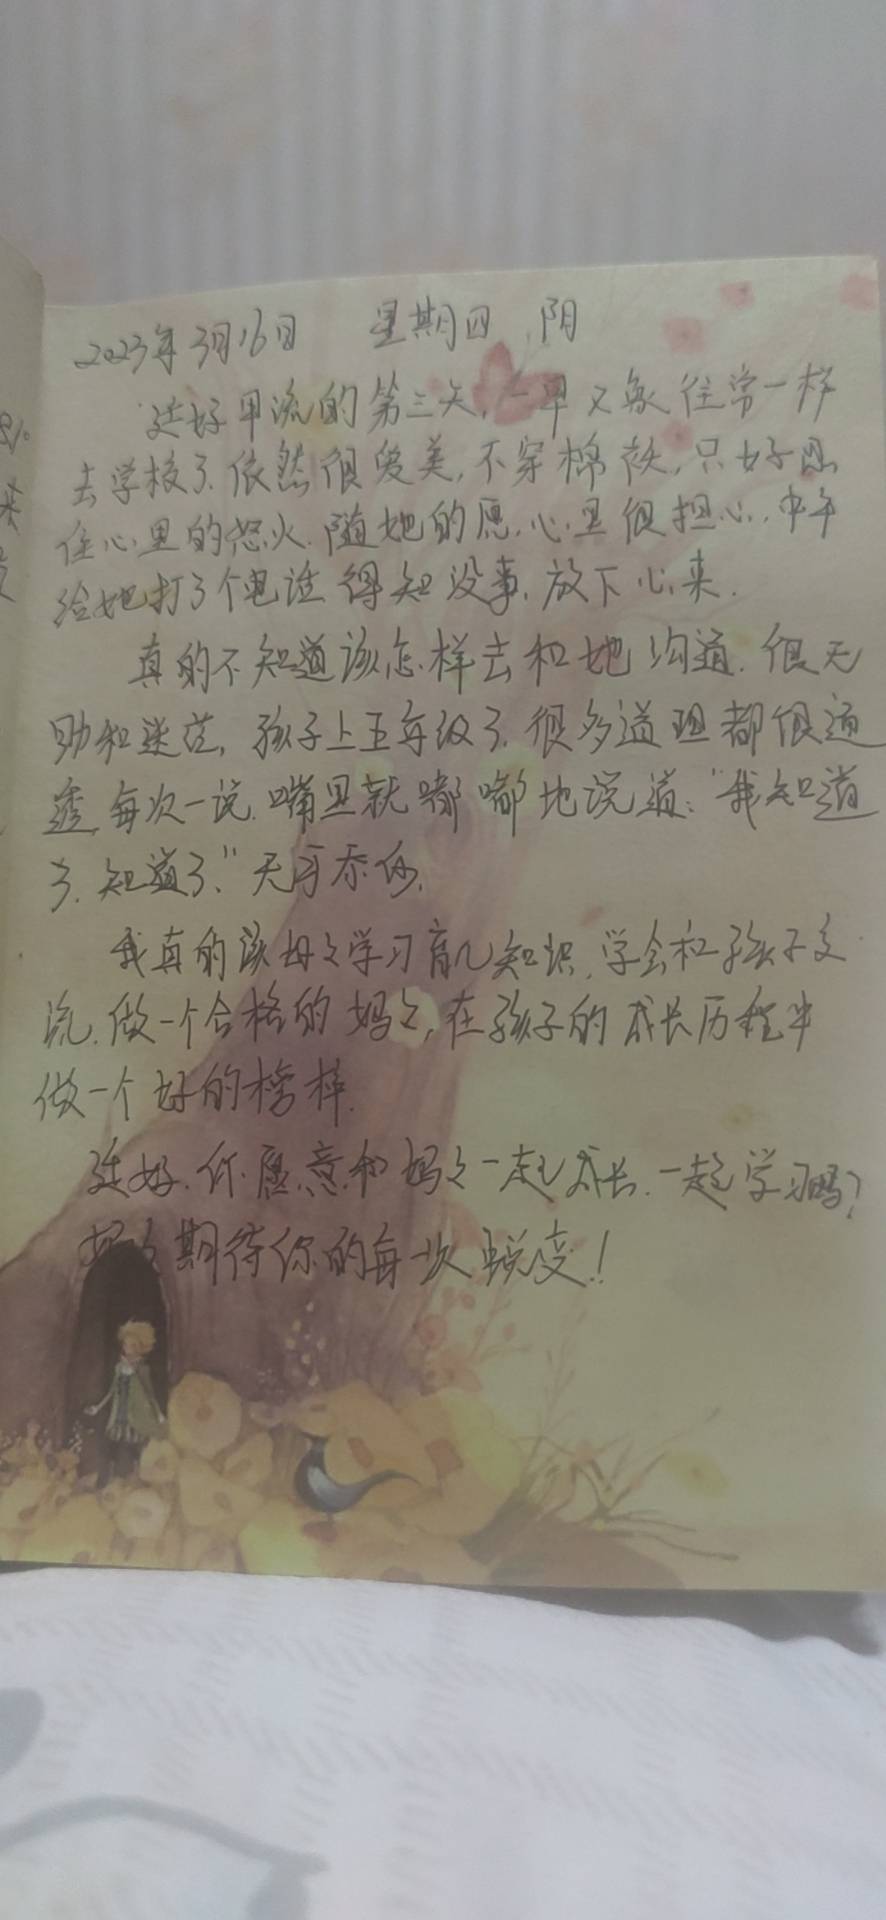 2023年3月16日 星期四 阴
廷好甲流的第三天,一早又象往常一样
去学校了.依然很爱美,不穿棉袄,只好忍
住心里的怒火.随她的愿,心里很担心,中午
给她打了个电话.得知没事,放下心来.
真的不知道该怎样去和她沟通.很无
助和迷茫,孩子上五年级了.很多道理都很通
透,每次一说.嘴里就嘟嘟地说道:"我知道
了.知道了."无可奈何.
我真的该好々学习育儿知识,学会和孩子交
流.做一个合格的妈々,在孩子的成长历程中
做一个好的榜样.
廷好.你愿意和妈々一起成长.一起学习吗?
妈々期待你的每一次蜕变!